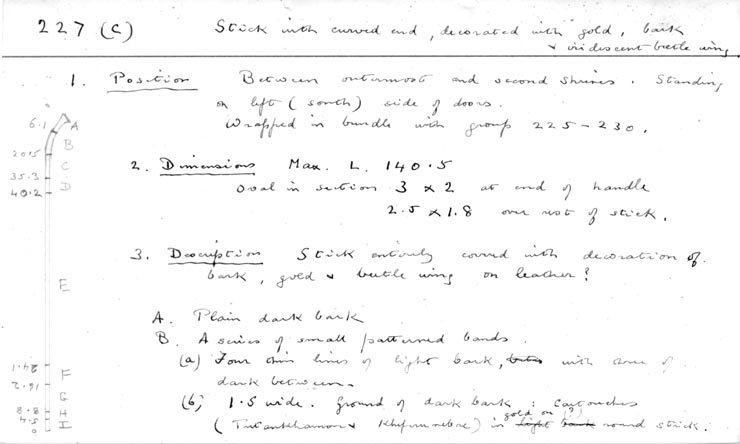 227 (c) Stick with curved end, decorated with gold, bark
& iridescent beetle wing
1. Position Between outermost and second shrines. Standing
on left (south) side of doors.
Wrapped in bundle with group 225-230.
2. Dimensions Max. L. 140.5
Oval in section 3 x 2 at end of handle
2.5 x 1.8 over rest of stick.
3. Description Stick entirely covered with decoration of
bark, gold & beetle wing on leather?
A. Plain dark bark
B. A series of small patterned bands.
(a) Four thin lines of light bark, with three of
dark between.
(b) 1.5 wide. Ground of dark bark: Cartouches
gold on (?)
(Tutankhamon & Kheperunebre) in light bark round stick.
6.1 A
B
20.5
C
35.3
D
40.2
E
F
G
8.8 H
4.5 I
0